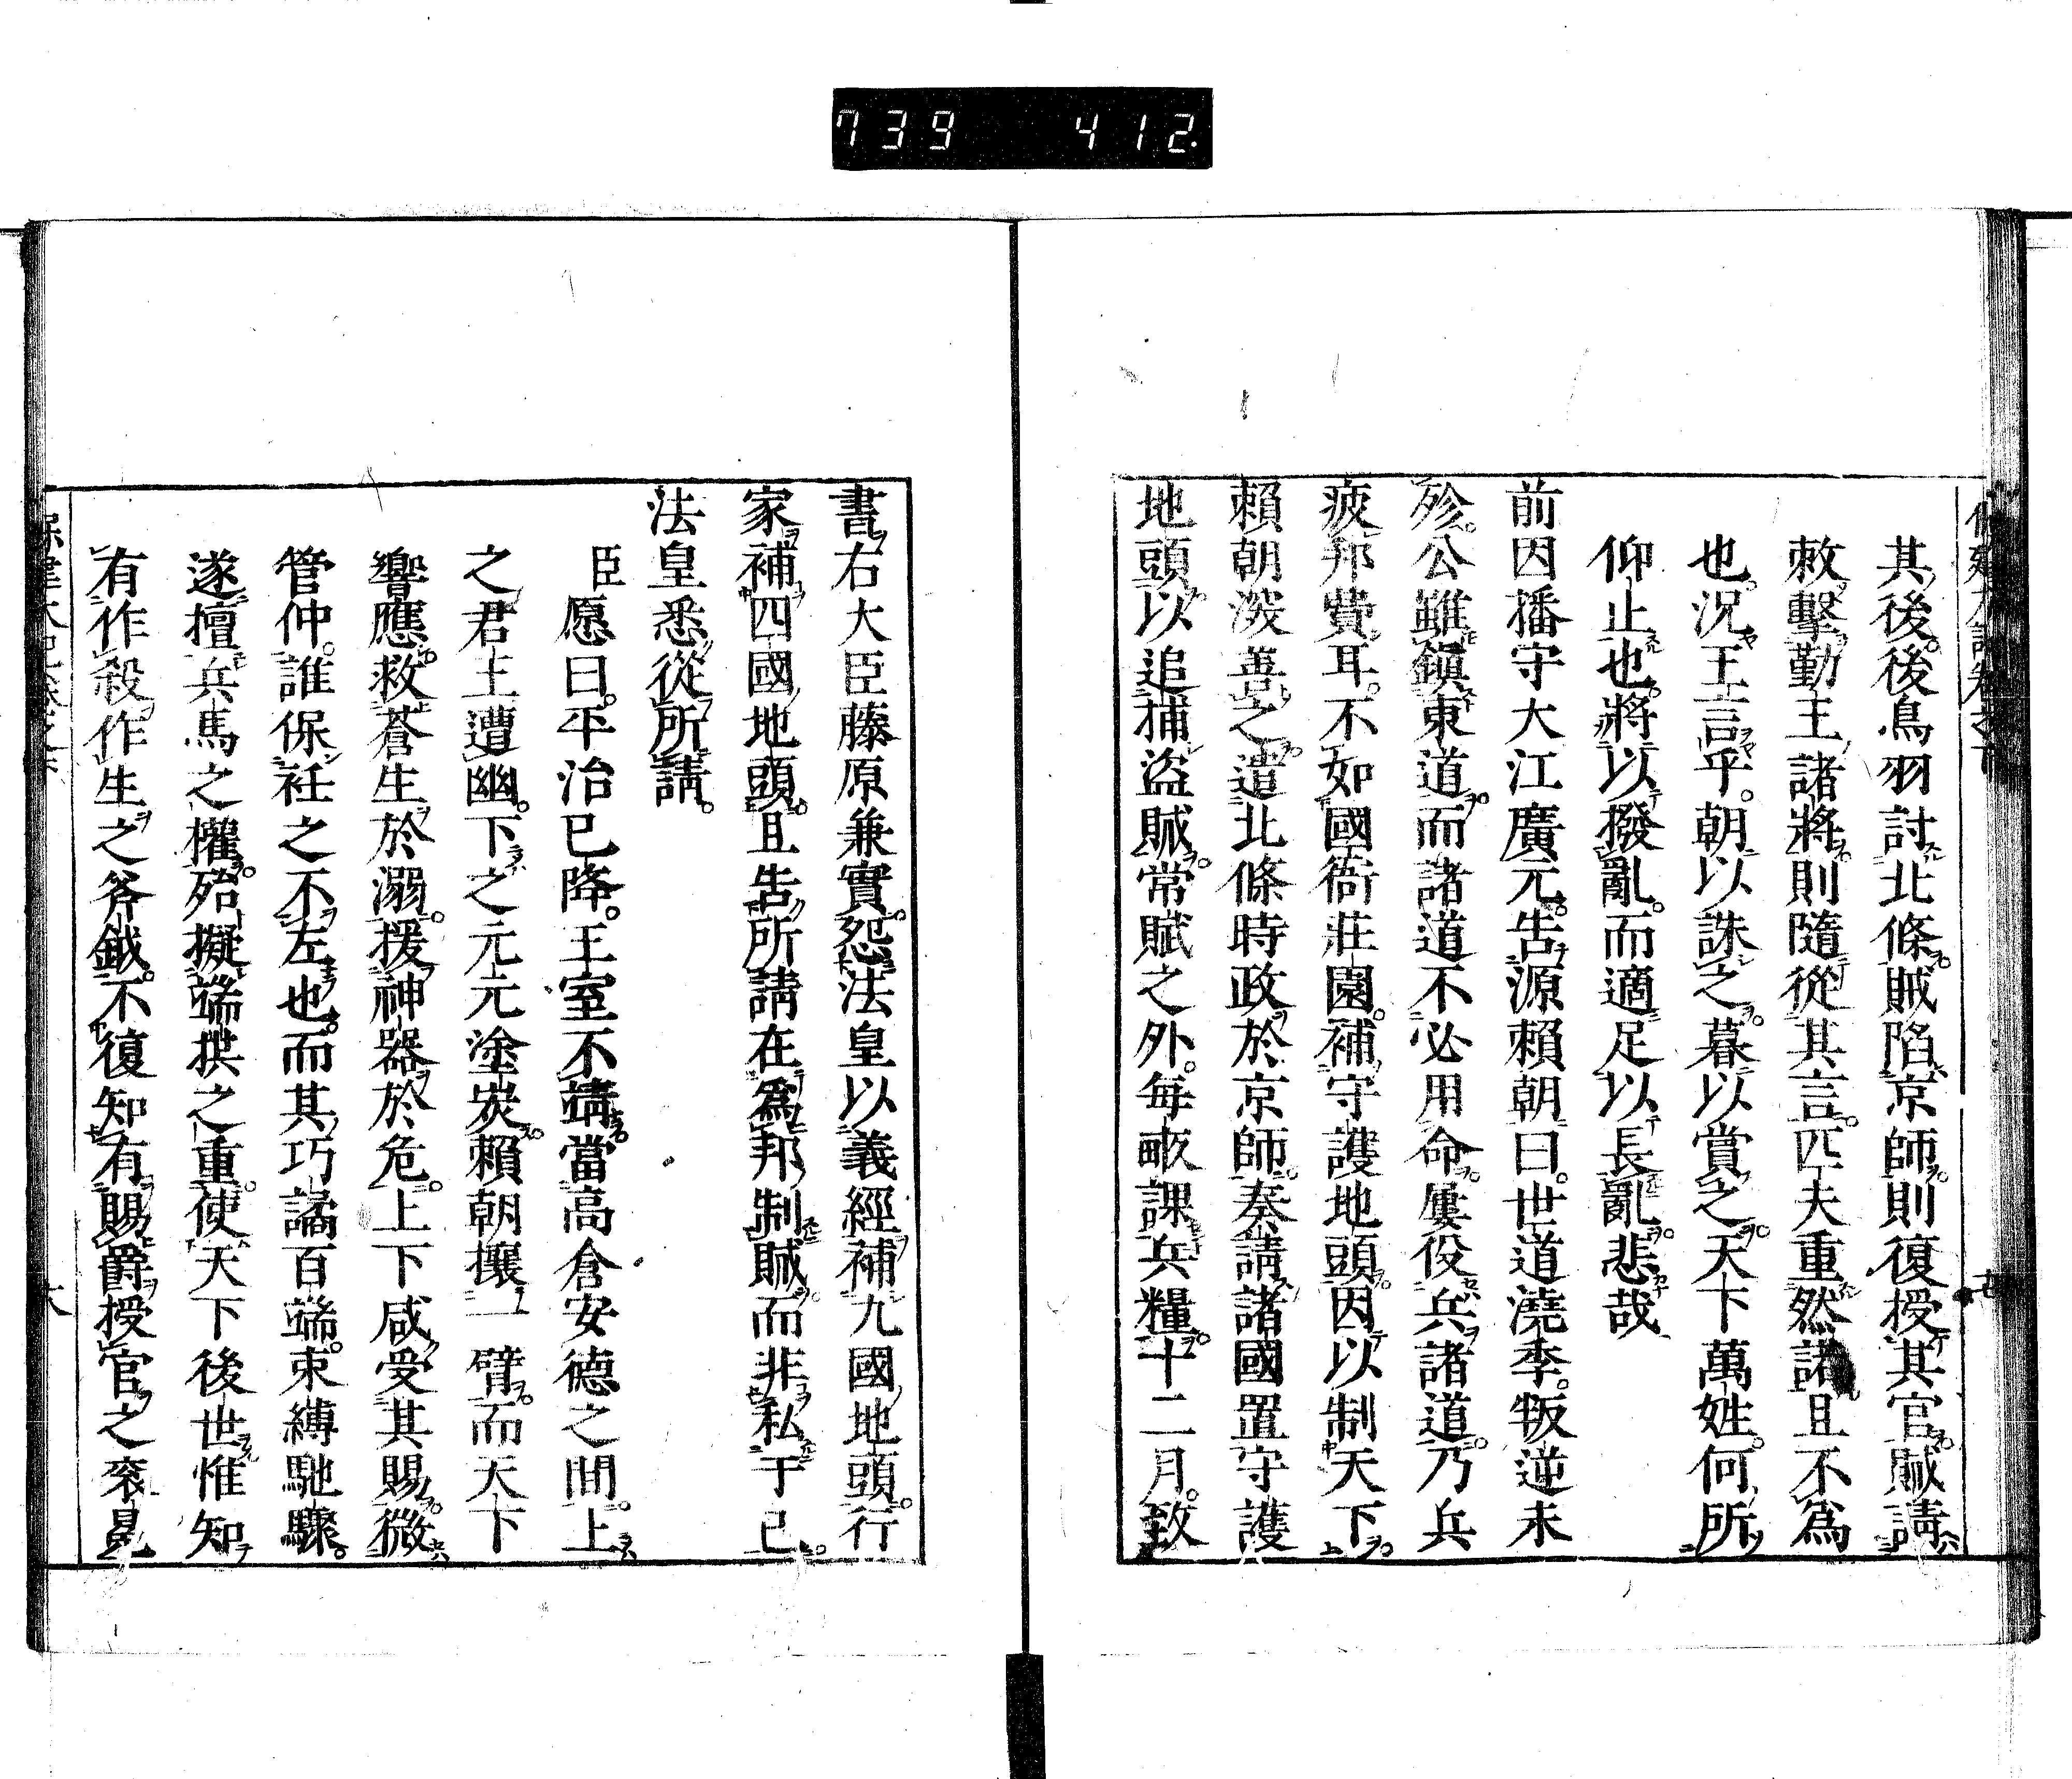 739 412.
其後。後鳥羽討北條。賊陷京師。則復授其官。賊請
敕擊勤王諸將。則隨從其言。匹夫重然諾。且不爲
也。況王言乎。朝以誅之。暮以賞之。天下萬姓。何所
仰止也。將以撥亂。而適足以長亂。悲哉
前因播守大江廣元。告源賴朝曰。世道澆季。叛逆未
殄。公雖鎭東道。而諸道不必用命。屢役兵諸道。乃兵
疲邦費耳。不如國衙莊園。補守護地頭。因以制天下。
賴朝深善之。遣北條時政於京師。奏請諸國置守護
地頭。以追捕盜賊。常賦之外。每畝課兵糧。十二月。致
書右大臣藤原兼實。怨法皇以義經補九國地頭。行
家補四國地頭。且告所請在爲邦制賊。而非私于己。
法皇悉從所請。
臣愿曰。平治已降。王室不靖。當高倉安德之間。上
之君主遭幽。下之元元塗炭。賴朝攘一臂。而天下
響應。救蒼生於溺。援神器於危。上下咸受其賜。微
管仲。誰保衽之不左也。而其巧譎百端。束縛馳驟。
遂擅兵馬之權。殆擬端拱之重。使天下後世惟知
有作殺作生之斧鉞。不復知有賜爵授官之袞冕